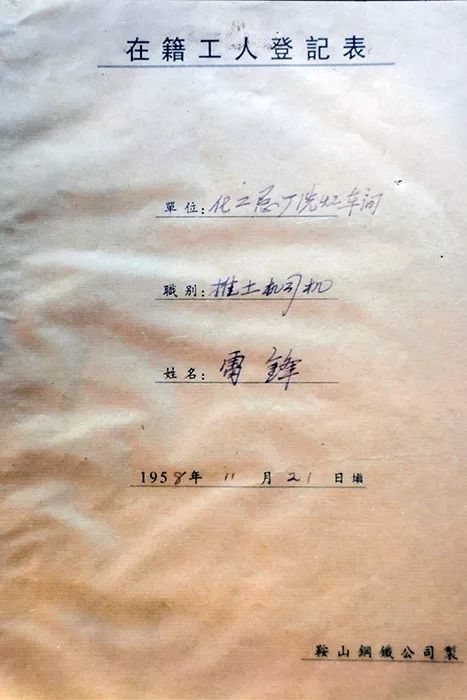 在籍工人登記表
單位:化工总厂洗煤车间
職别:推土机司机
姓名:雷鋒
1958年11月21日填
鞍山鋼鐵公司製